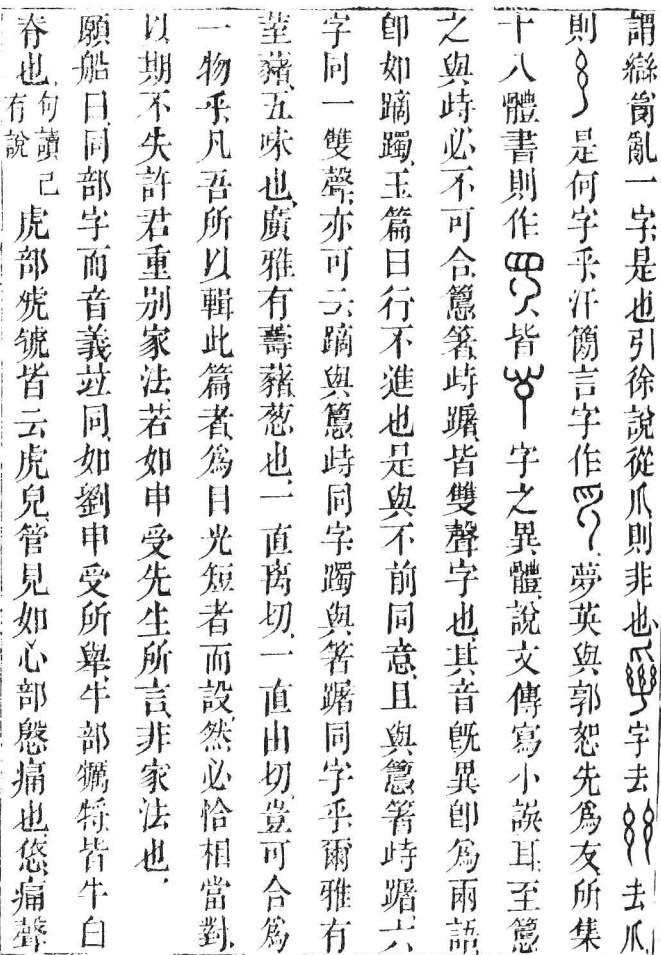 謂䜌𤔔亂一字是也引徐說從爪則非也字去去爪
則是何字乎汗簡言字作夢英與郭恕先爲友所集
十八體書則作皆字之異體說文傳寫小誤耳至𥴧
之與峙必不可合𥴧箸峙躇皆雙聲字也其音旣異卽爲兩語
卽如蹢躅玉篇曰行不進也是與不前同意且與𥴧箸峙躇六
字同一雙聲亦可云蹢與𥴧峙同字躅與箸躇同字乎爾雅有
荎藸五味也廣雅有藸葱也一直离切一直由切豈可合爲
一物乎凡吾所以輯此篇者爲目光短者而設然必恰相當對
以期不失許君重別家法若如申受先生所言非家法也
願船曰同部字而音義竝同如劉申受所舉牛部犡㹁皆牛白
脊也句讀已有說虎部虓虩皆云虎皃管見如心部慇痛也㥯痛聲